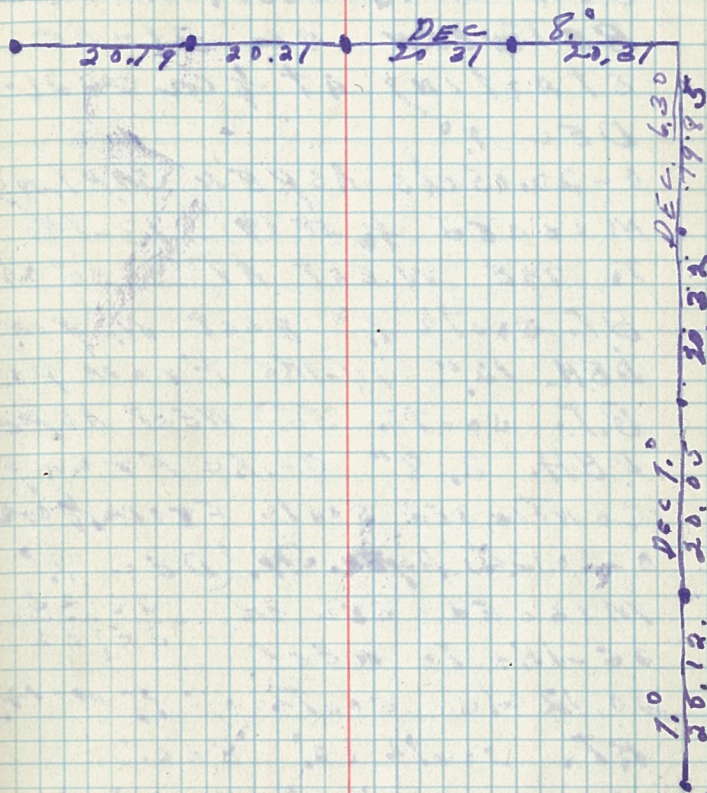 DEC 8.°
20.19 20.21 20 31 20.31
DEC. 6.30
19.85
20.32
DEC 7.°
20.05
7.°
20.12.